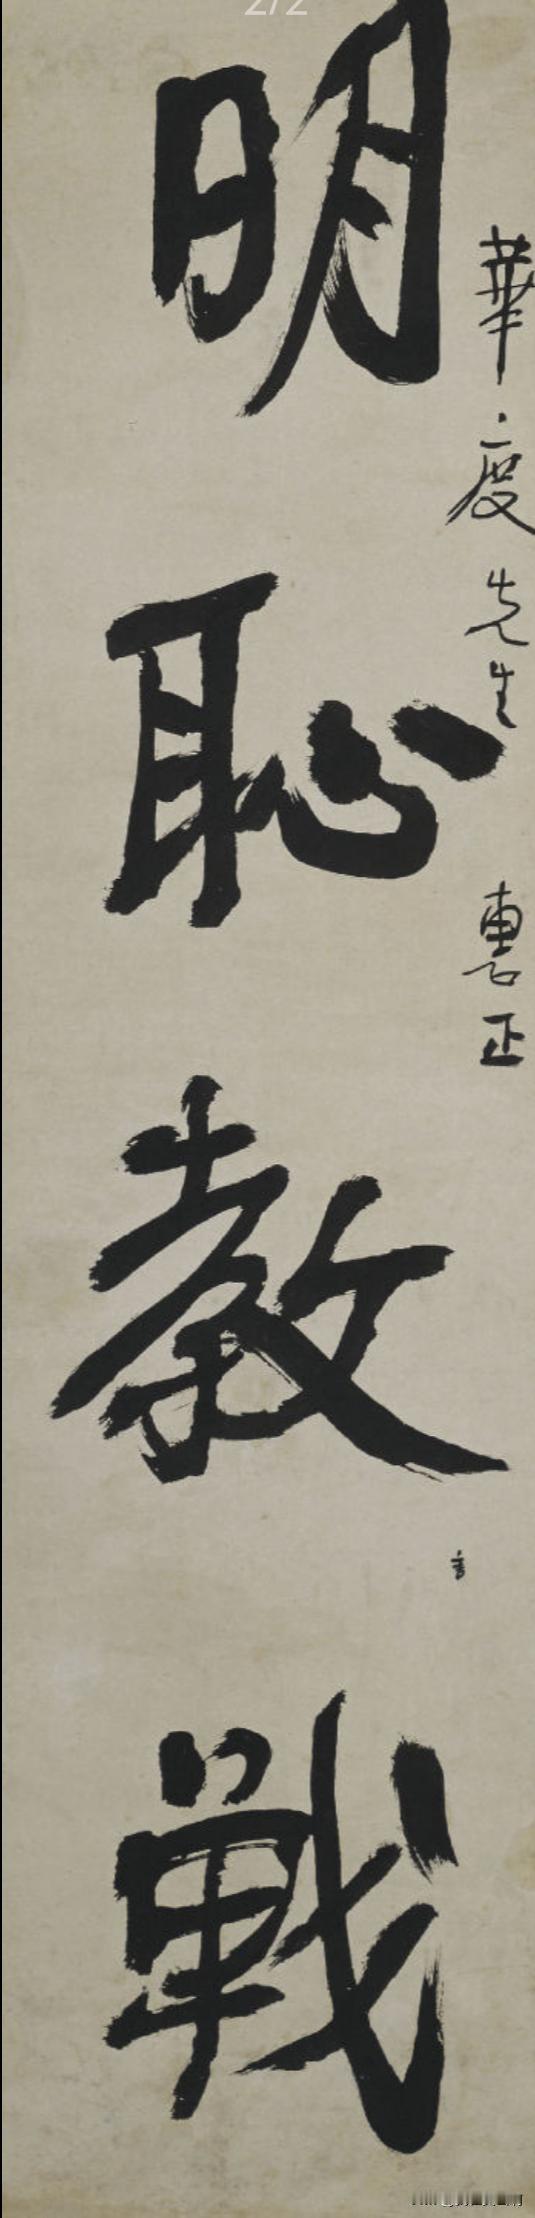 2/2
華度先生 惠正
明恥教戰
言